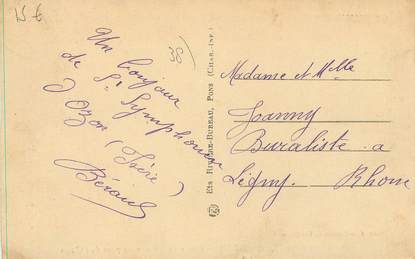 15 €
38
Un bonjour
de St Symphorien
d'Ozon (Isère)
Béraud
Ets Rivière-Bureau, Pons (Char.-Inf.)
Madame et Mlle
Joanny
Buraliste a
Légny. Rhone